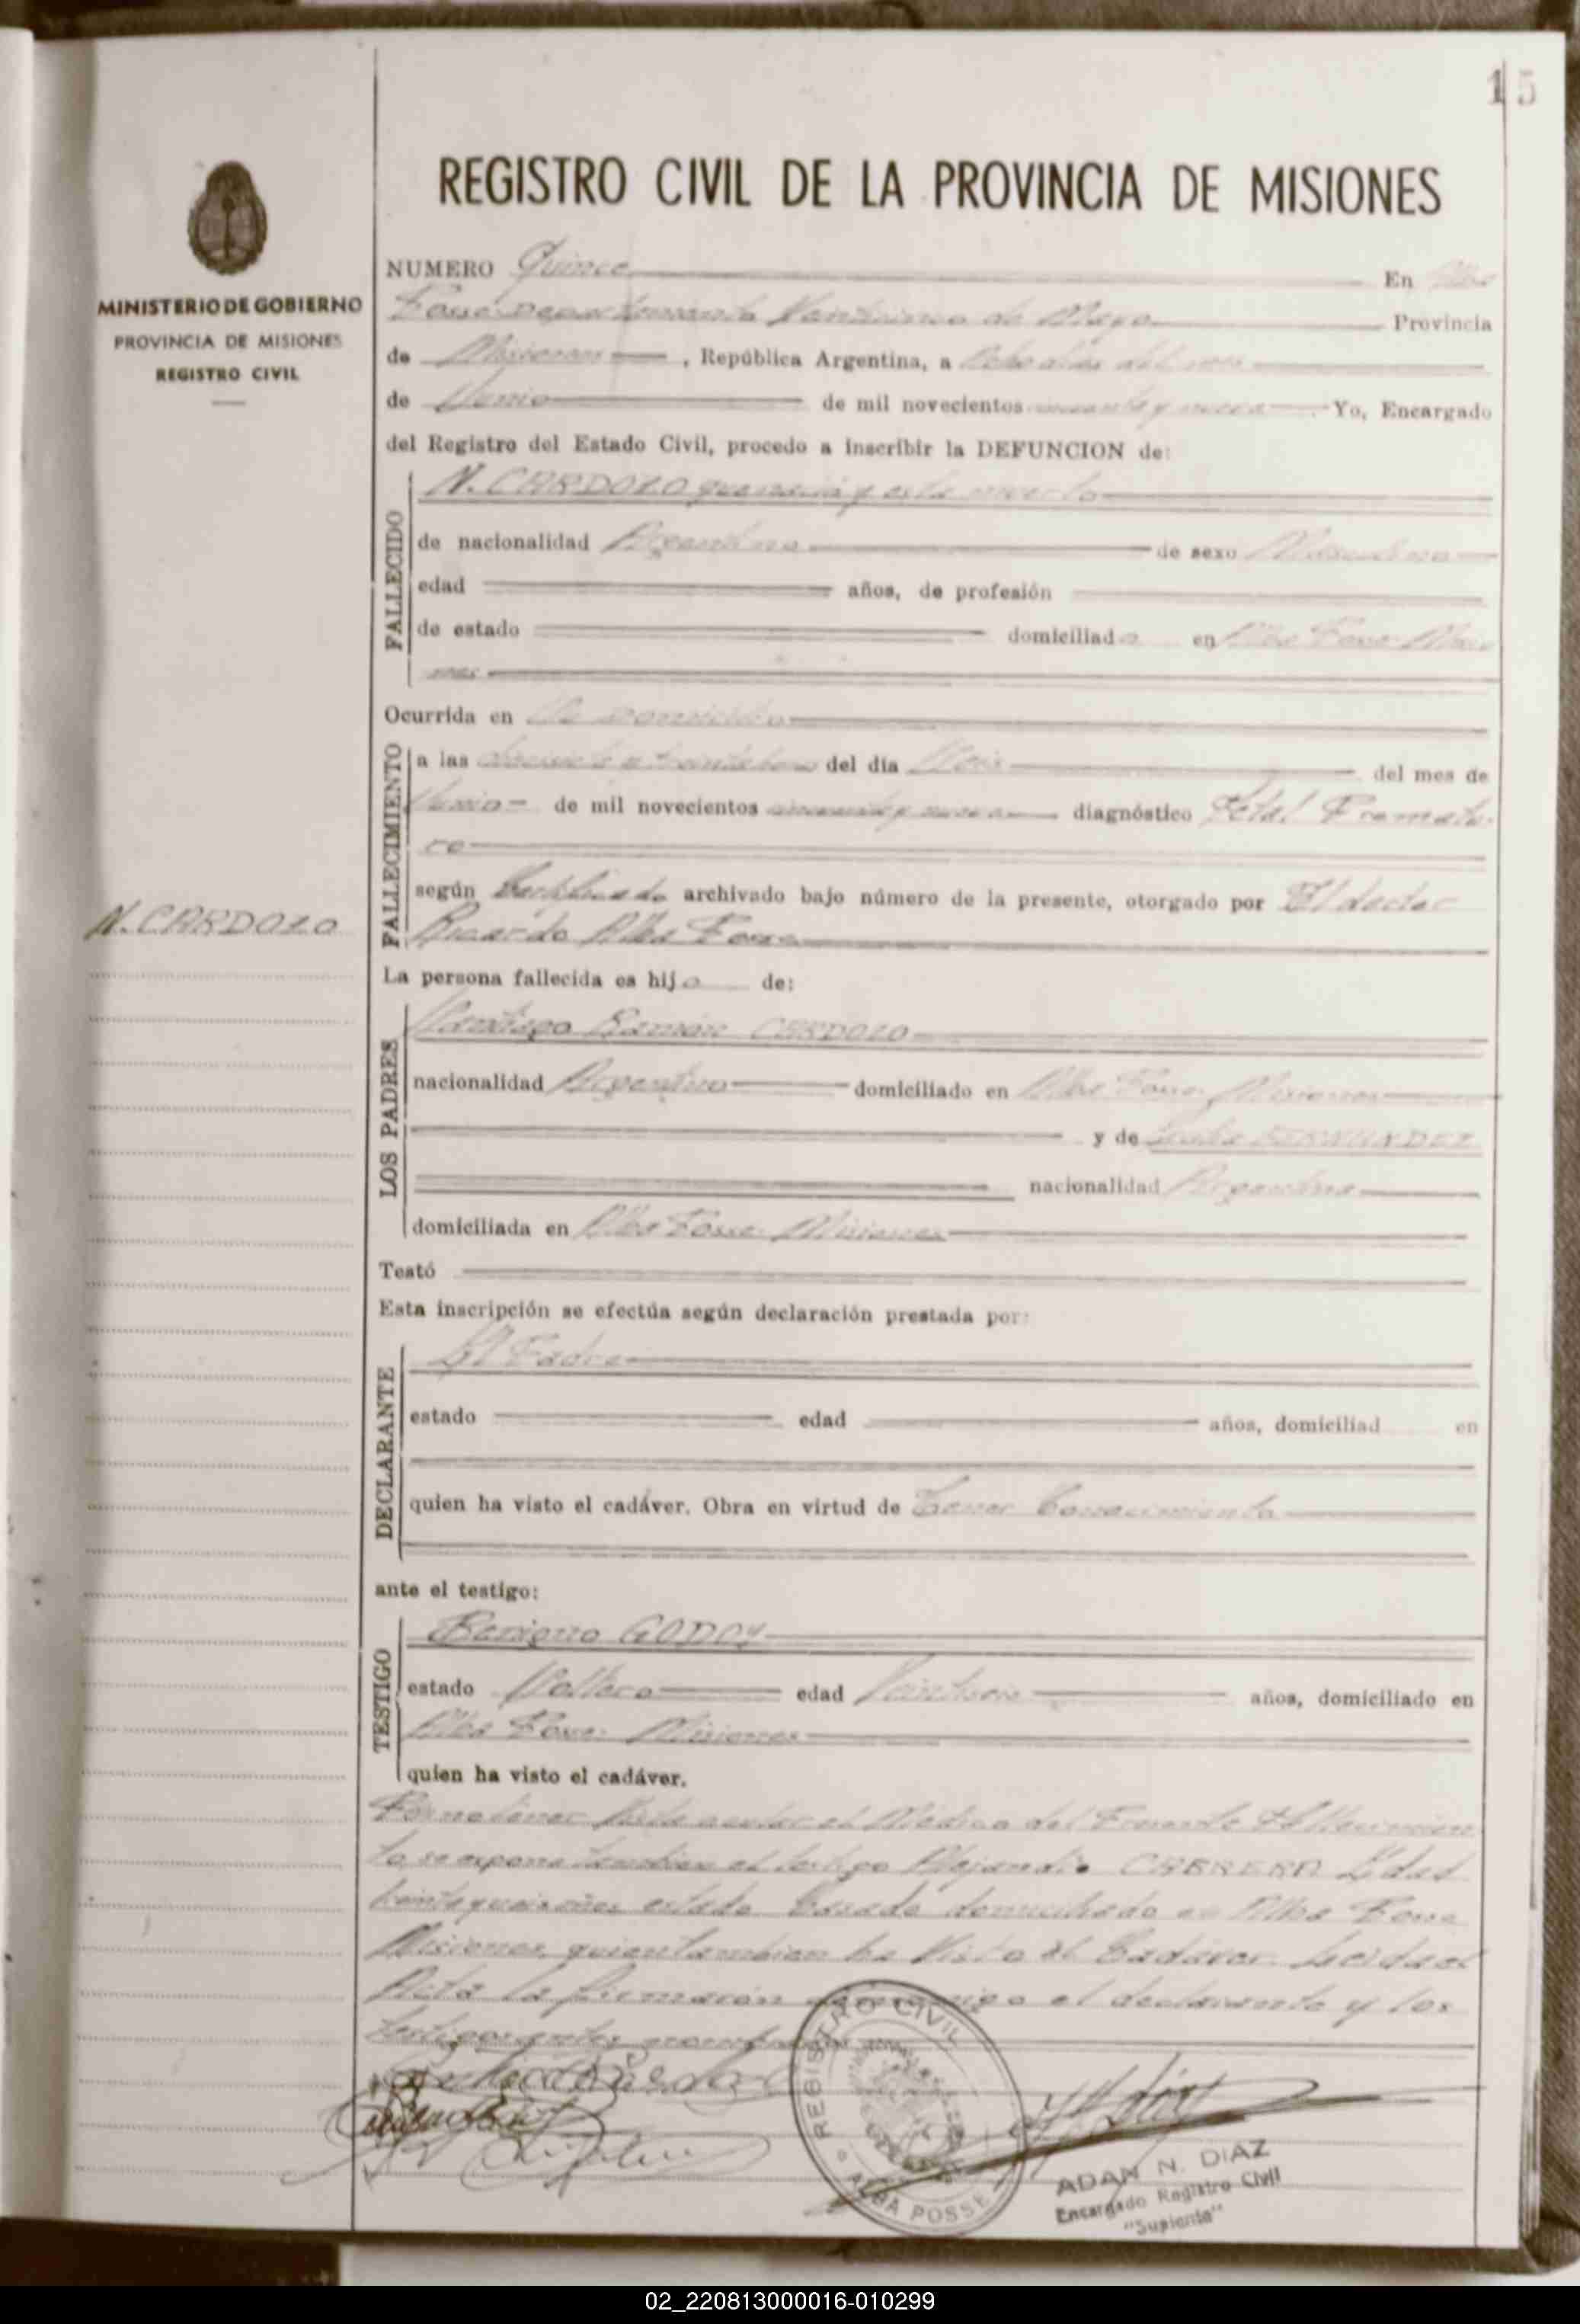 15
REGISTRO CIVIL DE LA PROVINCIA DE MISIONES
MINISTERIO DE GOBIERNO
PROVINCIA DE MISIONES
REGISTRO CIVIL
NUMERO Quince En Alba
Posse Departamento Veinticinco de Mayo Provincia
de Misiones, República Argentina, a ocho dias del mes
de Junio de mil novecientos cincuenta y nueve. Yo, Encargado
del Registro del Estado Civil, procedo a inscribir la DEFUNCION de:
FALLECIDO
N. CARDOZO que nacio y esta muerto
de nacionalidad Argentina de sexo Masculino
edad años, de profesión
de estado domiciliado en Alba Posse Misio
nes
Ocurrida en Su Domicilio
FALLECIMIENTO
a las del día del mes de
Junio de mil novecientos cincuenta y nueve diagnóstico Fetal Prematu-
ro
según Certificado archivado bajo número de la presente, otorgado por El doctor
Ricardo Alba Posse
N. CARDOZO
La persona fallecida es hijo de:
LOS PADRES
Santiago Ramón CARDOZO
nacionalidad Argentino domiciliado en Alba Posse Misiones
y de FERNANDEZ
nacionalidad Argentina
domiciliada en Alba Posse Misiones
Testó
Esta inscripción se efectúa según declaración prestada por:
DECLARANTE
El Padre
estado edad años, domiciliad en
quien ha visto el cadáver. Obra en virtud de Tener Conocimiento
ante el testigo:
TESTIGO
Benigno GODOY
estado Soltero edad años, domiciliado en
Alba Posse Misiones
quien ha visto el cadáver.
Por no tener el Médico del Presente Fallecimien
to se expone tambien el testigo Alejandro CABRERA Edad
estado Casado domiciliado en Alba Posse
Misiones, quien tambien ha Visto el Cadaver. Leida el
Acta la firmaron conmigo el declarante y los
testigos antes nombrados
REGISTRO CIVIL
ALBA POSSE
ADAN N. DIAZ
Encargado Registro Civil
"Suplente"
02_220813000016-010299